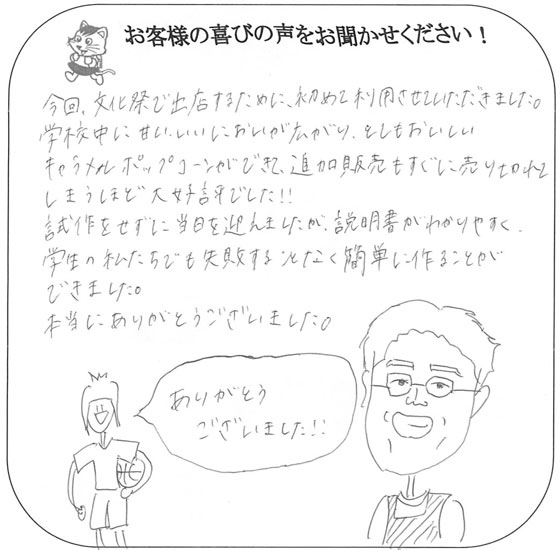 お客様の喜びの声をお聞かせください！
今回、文化祭で出店するために、初めて利用させていただきました。
学校中に甘いいいにおいが広がり、とてもおいしい
キャラメルポップコーンができて、追加販売もすぐに売り切れて
しまうほど大好評でした!!
試作をせずに当日を迎えましたが、説明書がわかりやすく、
学生の私たちでも失敗することなく簡単に作ることが
できました。
本当にありがとうございました。
ありがとう
ございました!!